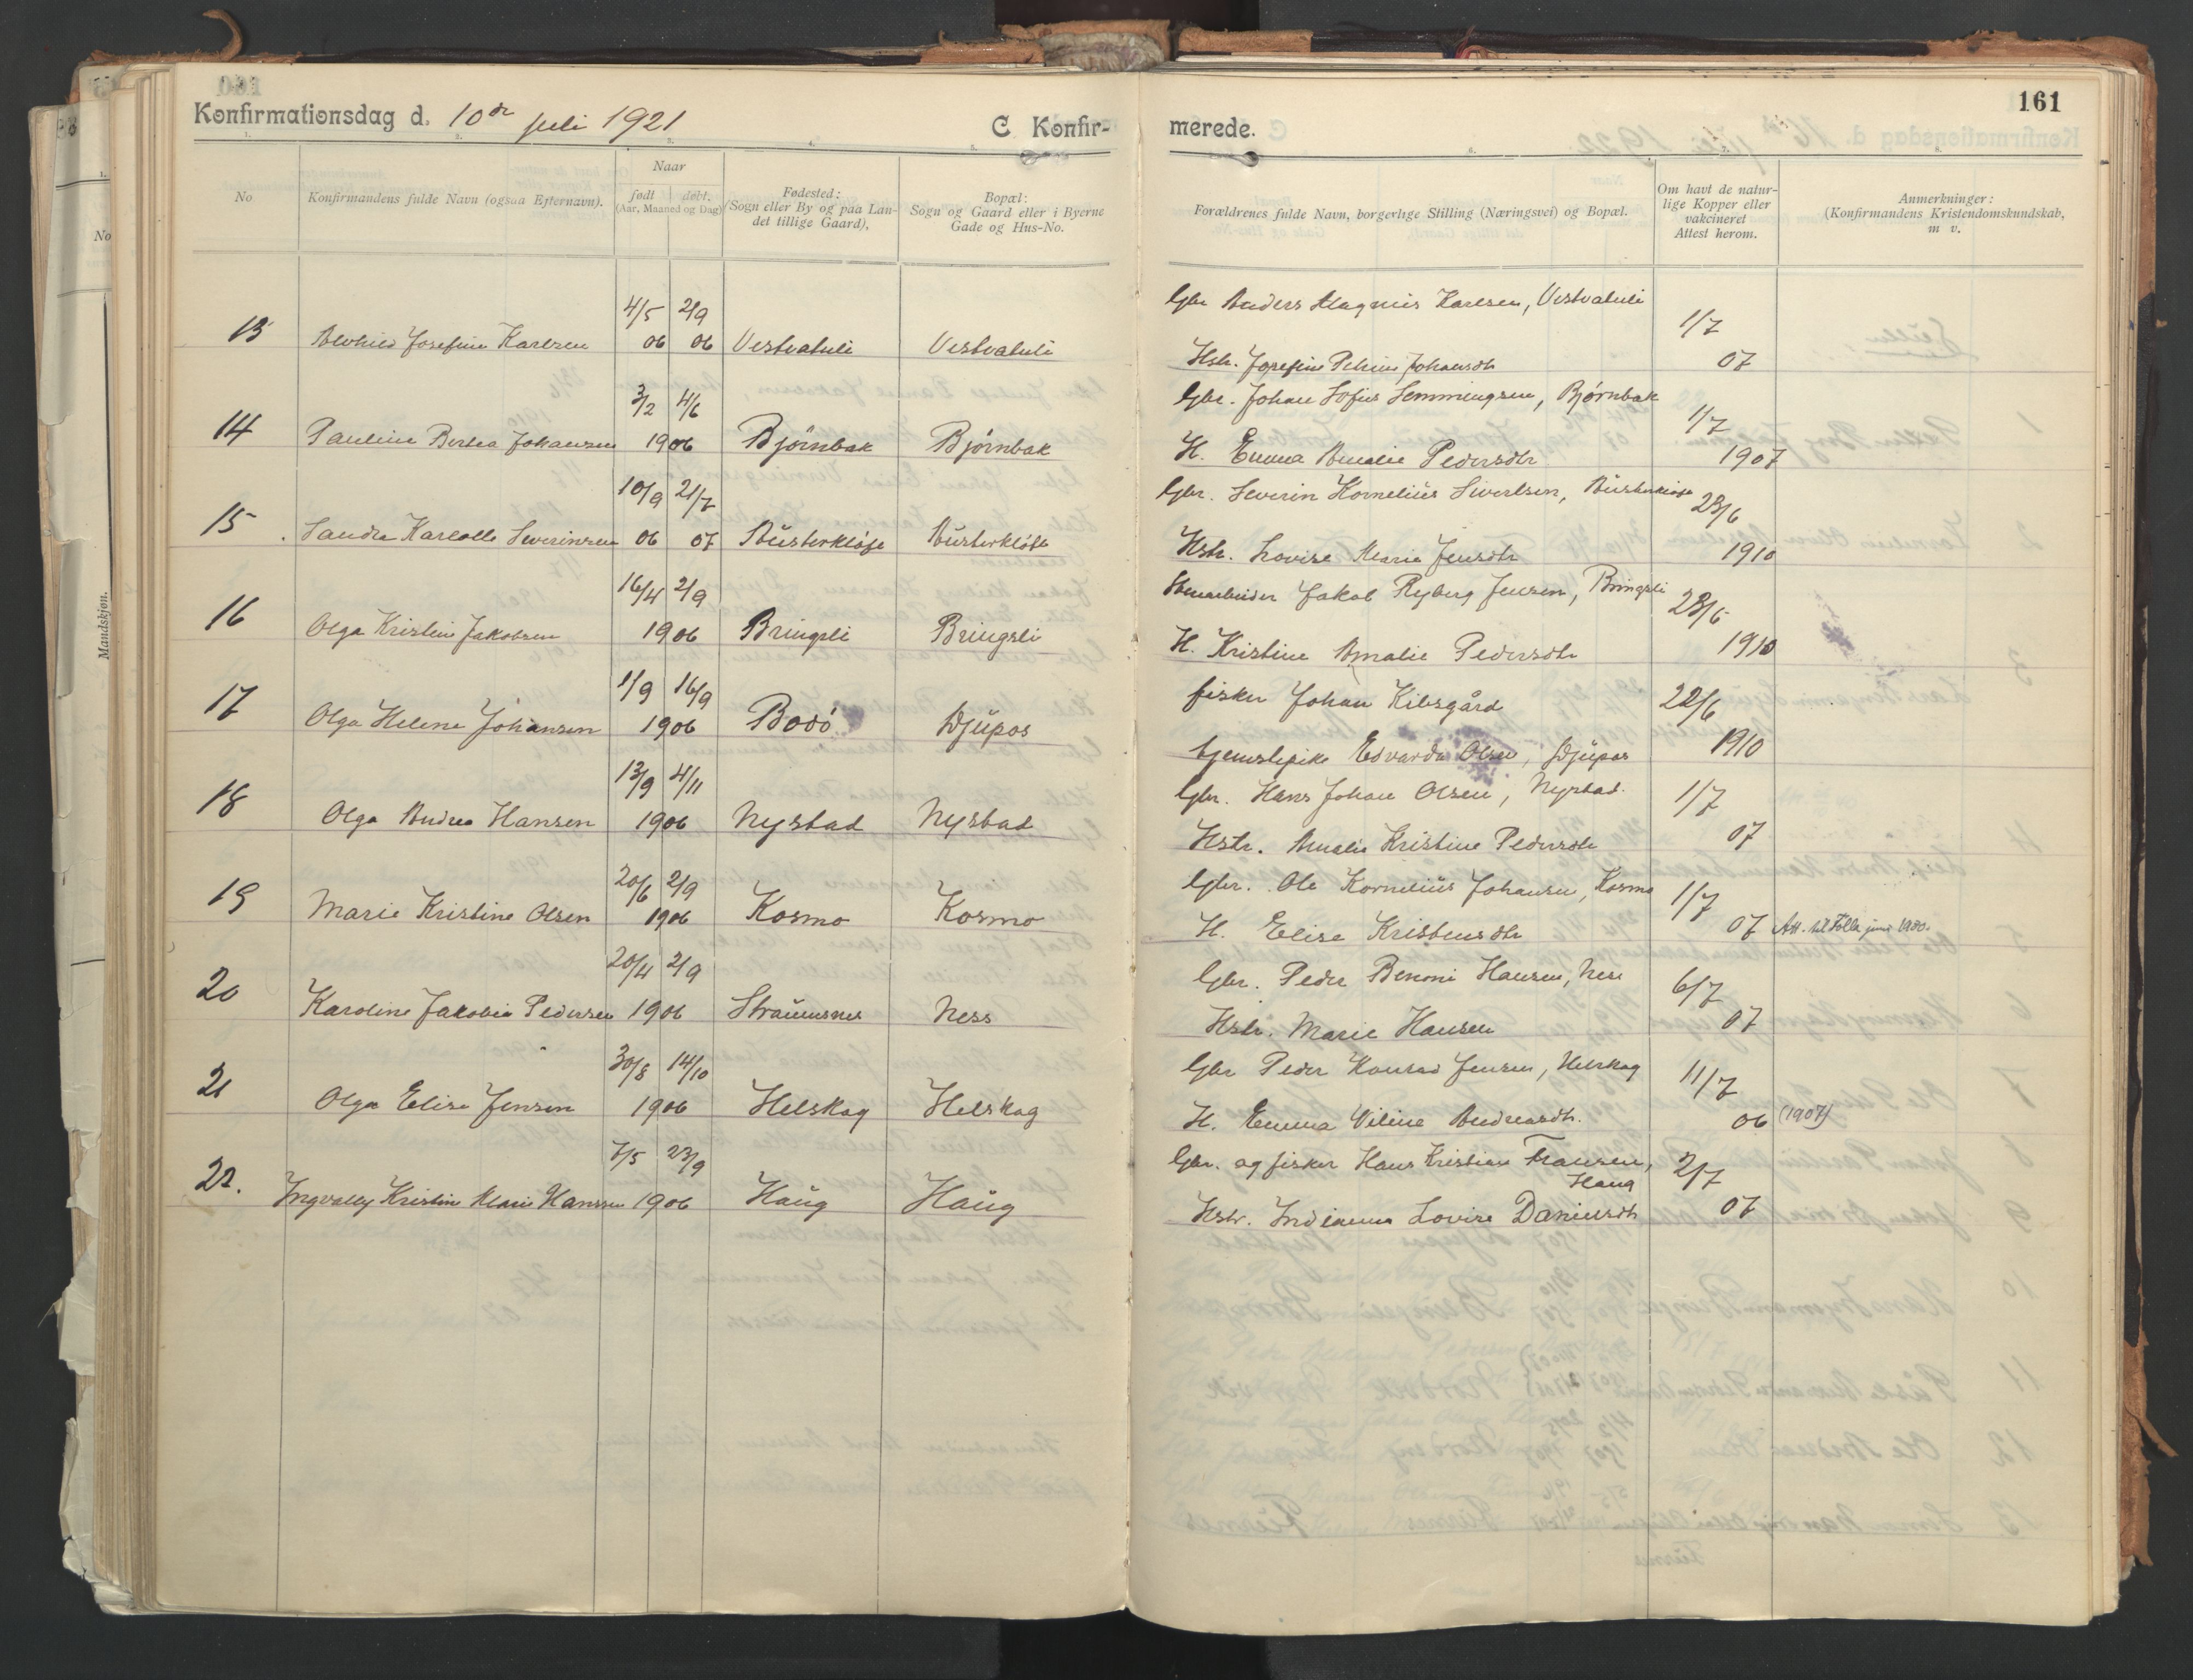 161
Konfirmationsdag d. 10de juli 1921
C Konfir-
merede.
No
Konfirmandens fulde Navn (ogsaa Efternavn).
Naar
født
døbt.
(Aar, Maaned og Dag)
Fødested:
(Sogn eller By og paa Lan-
det tillige Gaard),
Bopæl:
Sogn og Gaard eller i Byerne
Gade og Hus-No.
Forældrenes fulde Navn, borgerlige Stilling (Næringsvei) og Bopæl.
Om havt de natur-
lige Kopper eller
vakcineret
Attest herom.
Anmerkninger:
(Konfirmandens Kristendomskundskab,
m v.
4/5 2/9 Gbr Anders Magnus Karlsen, Vestvatuli 1/7
13 Alvhild Josefine Karlsen 06 06 Vestvatuli Vestvatuli Hstr. Josefine Johansdtr 07
3/2 4/6 Gbr. Johan Sofus Lemmingsen, Bjørnbak 1/7
14 Pauline Bertea Johansen 1906 Bjørnbak Bjørnbak H. Emma Amalie Pedersdtr 1907
10/9 21/7 Gbr. Severin Kornelius Sivertsen, 23/6
15 Sandra Severinsen 06 07 Hstr. Lovise Marie Jensdtr 1910
16/4 2/9 Jakob Ryberg Jensen, Bringsli 23/6
16 Olga Kristine Jakobsen 1906 Bringsli Bringsli H. Kristine Amalie Pedersdtr 1910
1/9 16/9 fisker Johan Kibsgård 22/6
17 Olga Helene Johansen 1906 Bodø Djupos Edvarda Olsen, Djupos 1910
13/9 4/11 Gbr. Hans Johan Olsen, Nystad 1/7
18 Olga Andrea Hansen 1906 Nystad Nystad Hstr. Amalie Kristine Pedersdtr 07
20/6 2/9 Gbr. Ole Kornelius Johansen, Kosmo 1/7
19 Marie Kristine Olsen 1906 Kosmo Kosmo H. Elise Kristensdtr 07 Att. til juni
20/4 2/9 Gbr. Peder Benoni Hansen, Ness 6/7
20 Karoline Jakobea Pedersen 1906 Straumsnes Ness Hstr. Marie Hansen 07
30/8 14/10 Gbr Peder Konrad Jensen, Helskag 11/7
21 Olga Elise Jensen 1906 Helskag Helskag H. Emma Viline Andreasdtr. 06 (1907)
7/5 23/9 Gbr. og fisker Hans Kristian Fransen, 2/7
Haug
22. Ingvally Kristine Marie Hansen 1906 Haug Haug Hstr. Indianna Lovise Danielsdtr 07
Mandskjøn.
No